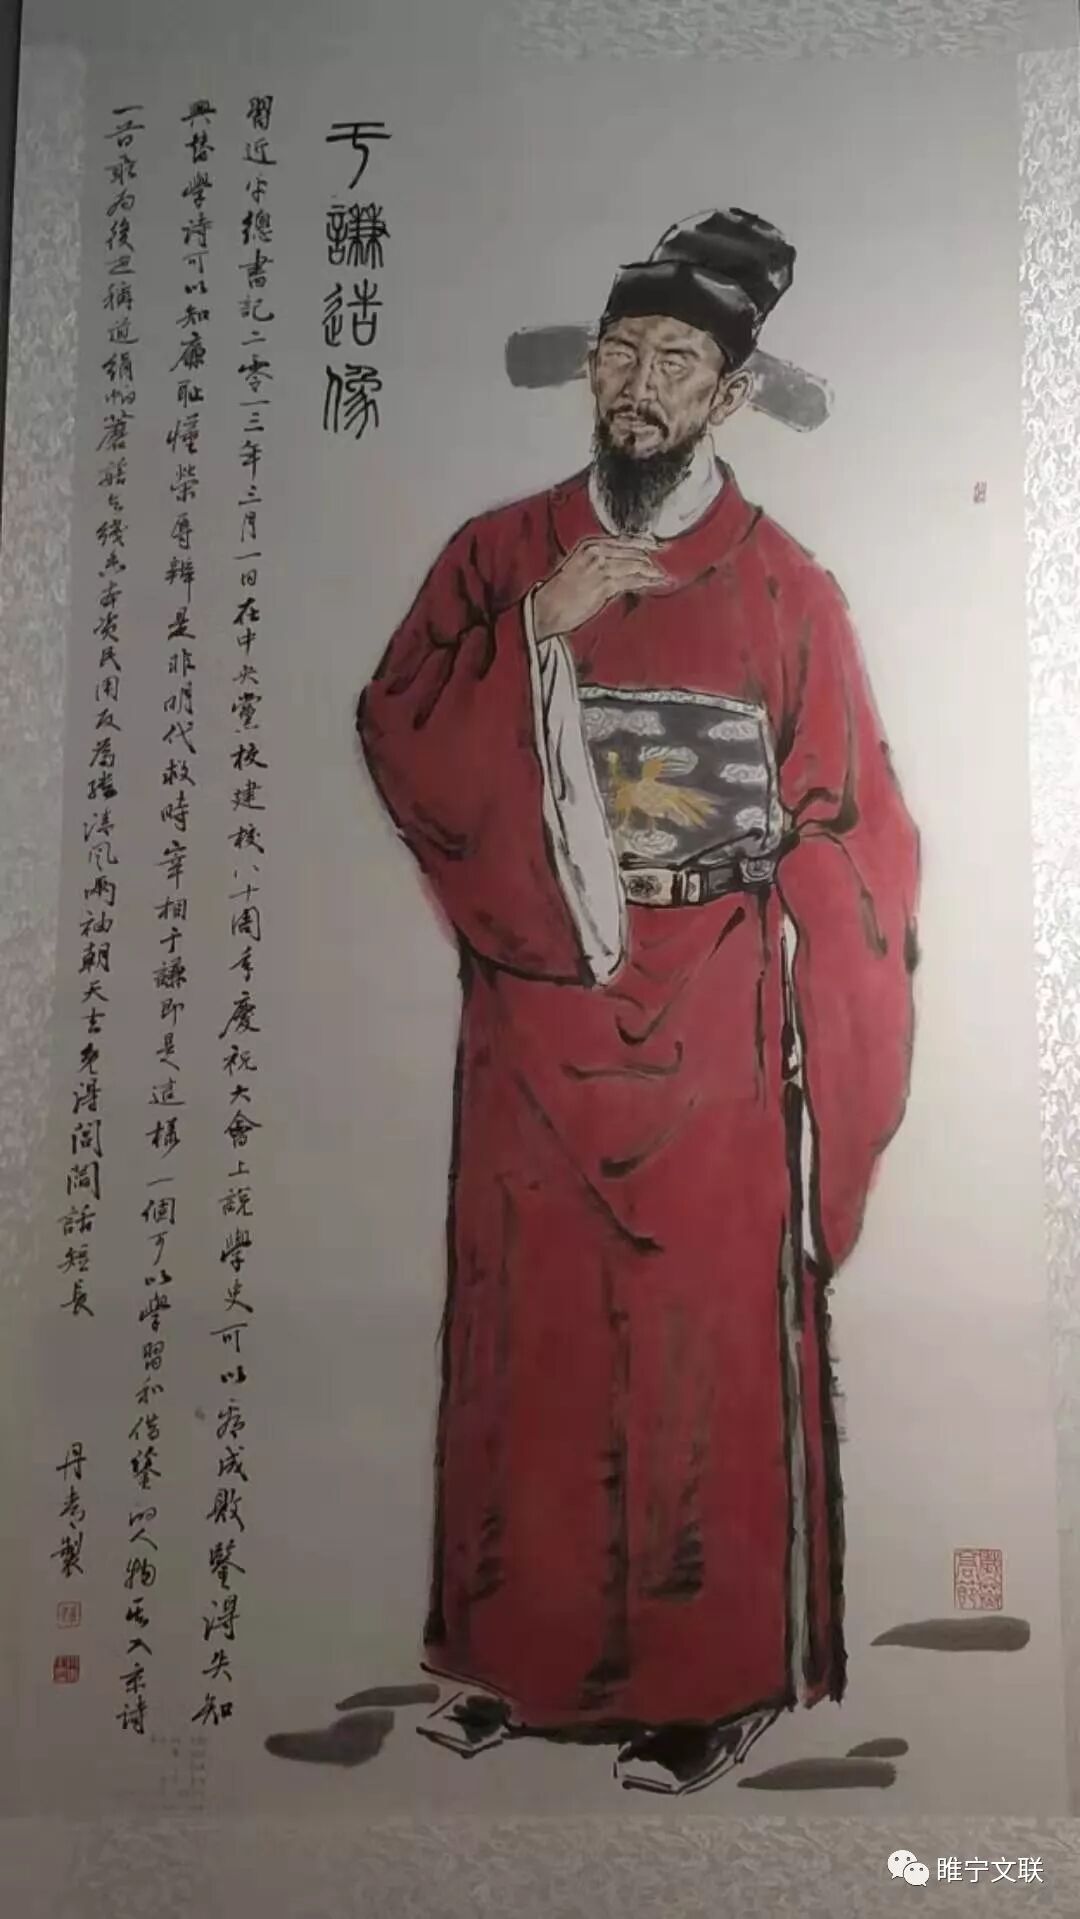 于謙造像
習近平總書記二零一三年三月一日在中央黨校建校八十周年慶祝大會上說學史可以看成敗鑒得失知
興替學诗可以知廉耻懂榮辱辨是非明代救時宰相于謙即是這樣一個可以學習和借鑒的人物其入京诗
一首敢为後世稱道絹帕蘑菇与线香本资民用反為殃清风兩袖朝天去免得閭閻話短長
丹青製
睢宁文联